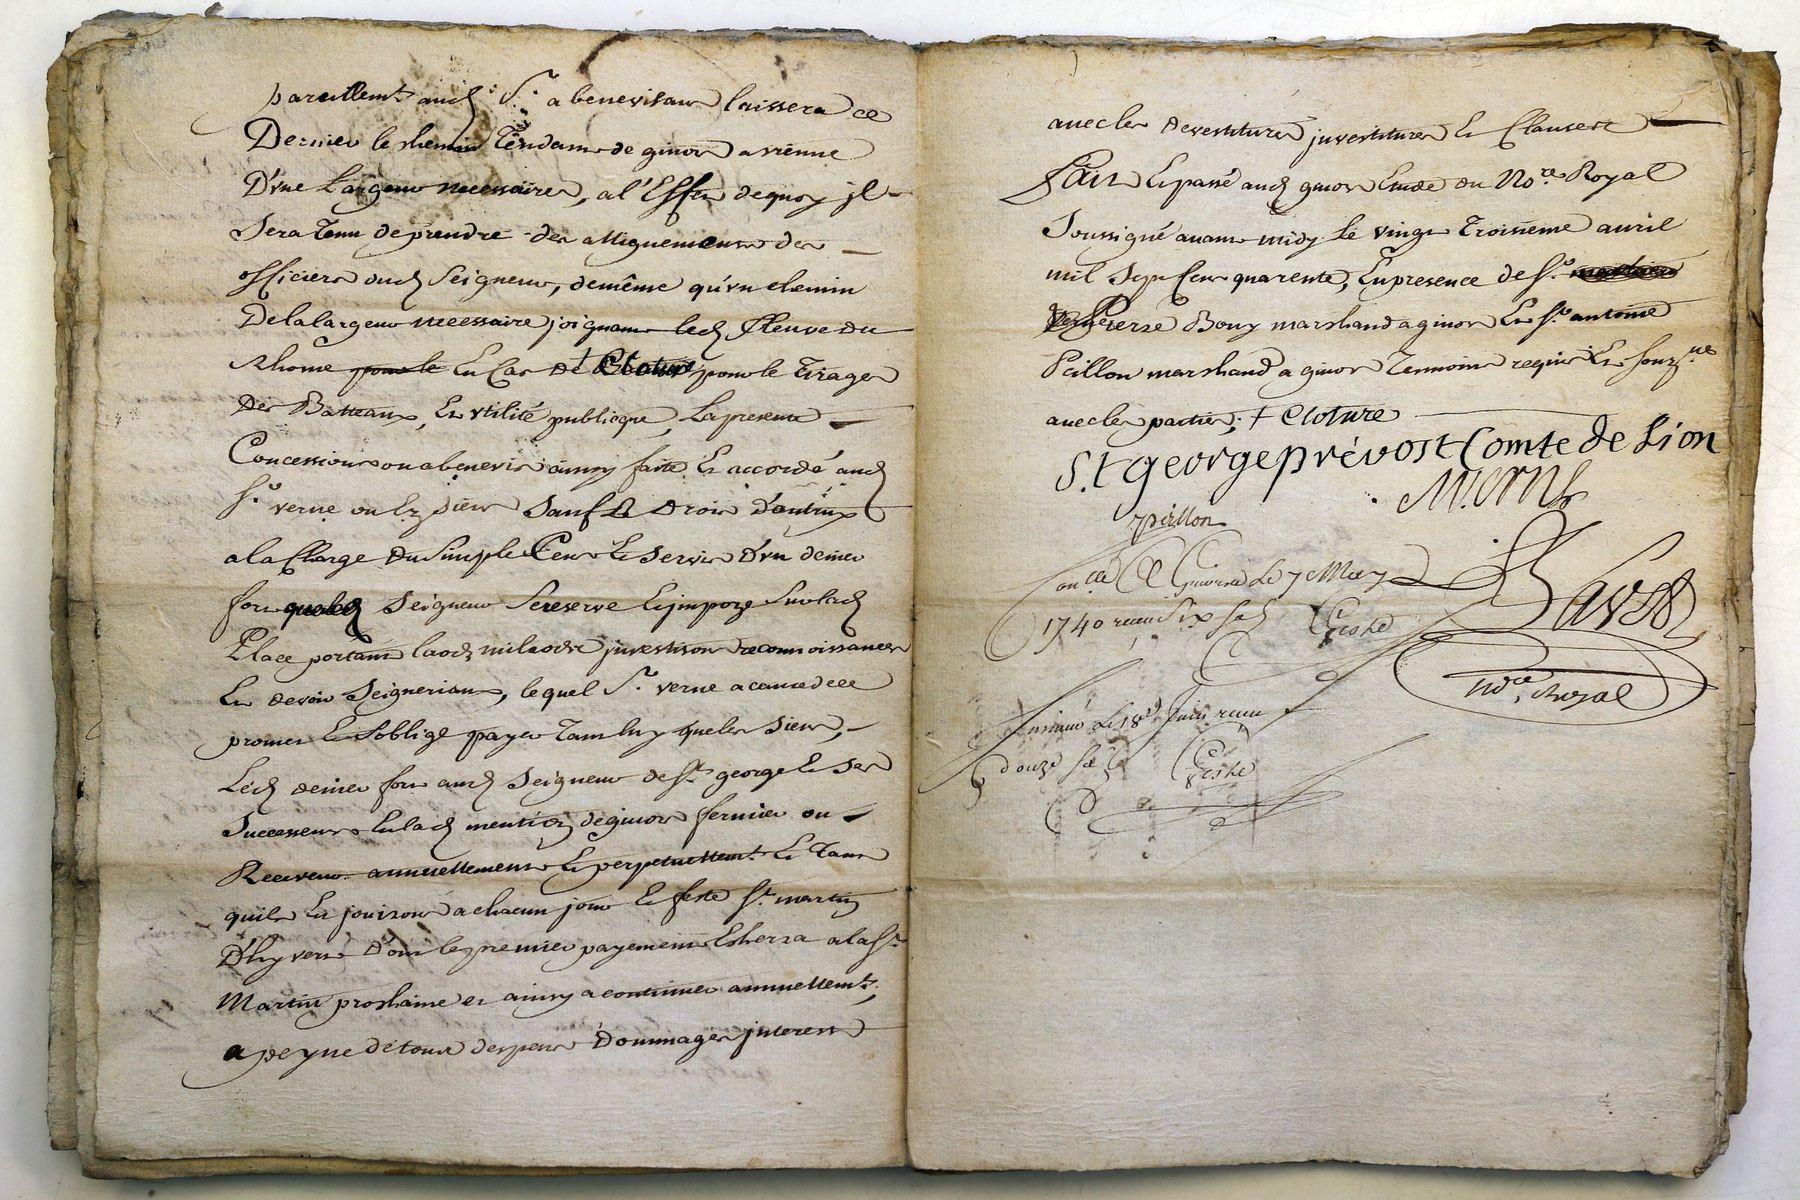 pareillemt aud Sr. abenevisau laissera ce
Dernier le chemin Tendam de givors a vienne
D'vne Largeur necessaire, a l'Effet de quoy jl
Sera Tenu de prendre des allignements des
officiers dud Seigneur, de même qu'vn chemin
De la largeur necessaire joignant led fleuve du
Rhome pour le En Cas de + Cloture pour le Tirage
Des Batteaux, Et vtilité publicque, La presente
Concession ou abenevis ainsy faite Et accordé aud
Sr. verne ou Les siens Sauf Le Droit D'autruy
a la Charge du Simple Cens Et Servis D'vn denier
fort quoled Seigneur Se reserve Et jmpoze Sur lad
Place portant laods milaods jnvestison reconnoissances
Et devoir Seigneriaux, lequel Sr. verne a
promet Et S'oblige payer Tant luy que les Siens,
Led denier fort aud Seigneur de St. george Et Ses
Successeurs En lad de givors fermier ou
Receveur annuellement Et perpetuellemt. Et Tant
quils En jouiront a chacun jour Et feste St. martin
D'hyvert Dont le premier payement Escherra a la St.
Martin prochaine et ainsy a continuer annuellemt.,
a peyne de tous despens Dommages jnterest
avec les devestitures jnvestitures Et Clauses
Fait Et passé aud givors Etude du Nore. Royal
Soussigné avant midy Le vingt Troisième avril
mil Sept Cent quarente, En presence de Sr.
Pierre Bouy marchand a givors Et Sr. antoine
Peillon marchand a givors Temoins requis Et Souzsnes
avec les parties; + Cloture
St george prévost Comte de Lion
Verne
Peillon
Conlle a Givors Le 7 May
1740 receu Six sols
Nore. Royal
Insinué Le 18e Juin receu
douze sols